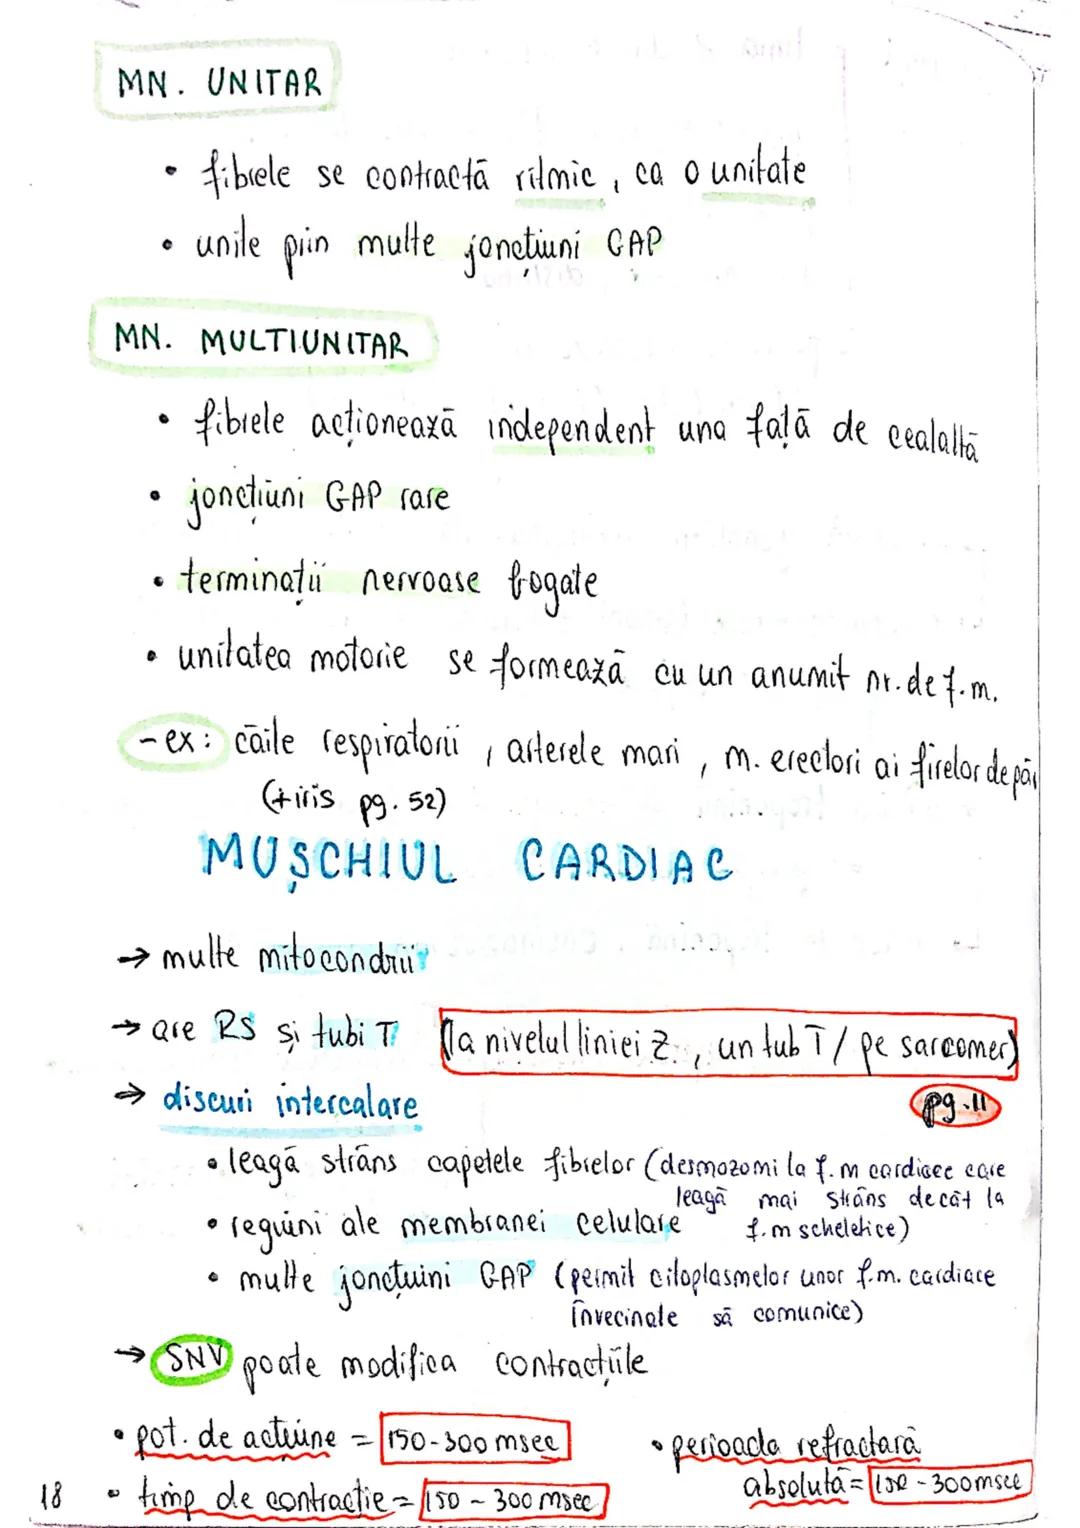 MN. UNITAR
• fibrele se contractă ritmic, ca o unitate
• unite prin multe joncțiuni GAP
MN. MULTIUNITAR
• fibrele acționează independent una față de cealaltă
• joncțiuni GAP rare
• terminații nervoase bogate
• unitatea motorie se formează cu un anumit nr. de f.m.
-ex: căile respiratorii, arterele mari, m. erectori ai firelor de păr
(+iris pg. 52)
MUȘCHIUL CARDIAC
→ multe mitocondrii
→ are RS și tubi T (la nivelul liniei Z, un tub T / pe sarcomer)
→ discuri intercalare pg. 11
• leagă strâns capetele fibrelor (desmozomi la f.m cardiace care
leagă mai strâns decât la
• regiuni ale membranei celulare f.m scheletice)
• multe joncțuini GAP (permit citoplasmelor unor f.m. cardiace
învecinate să comunice)
→ SNV poate modifica contracțiile
• pot. de acțiune = 150-300 msec • perioada refractară
absolută = 150-300msec
18 • timp de contracție = 150-300 msec